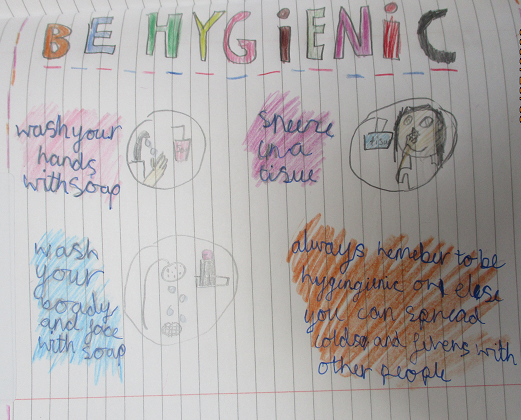 BE HYGiENiC
wash your
hands
with soap
sneeze
in a
tissue
wash
your
boady
and face
with soap
always remeber to be
hygingienic or elese
you can spread
colds and fevers with
other people